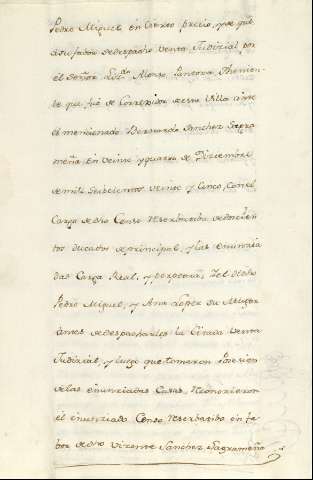 Pedro Miguel en cierto precio, y que à
su fabor se despachò Venta Judicial por
el Señor Lizdo. Alonso Pantoxa Thenien-
te que fuè de Correxidor de esta Villa ante
el mencionado Bernardo Sanchez Sagra-
meña en veinte y quatro de Diziembre
de mill seiscientos veinte y cinco, con el
Carga de dho Censo reserbatibo de doscien-
tos ducados de principal, y las enuncia
das Carga Real, y perpetua, Y el dicho
Pedro Miguel, y Ana Lopez su Muger
antes de despacharles la citada Venta
Judicial, y luego que tomaron Posesion
de las enunciadas Casas, reconozieron
el enunciado Censo reserbatibo en fa-
bor de dho Vizente Sanchez Sagrameña